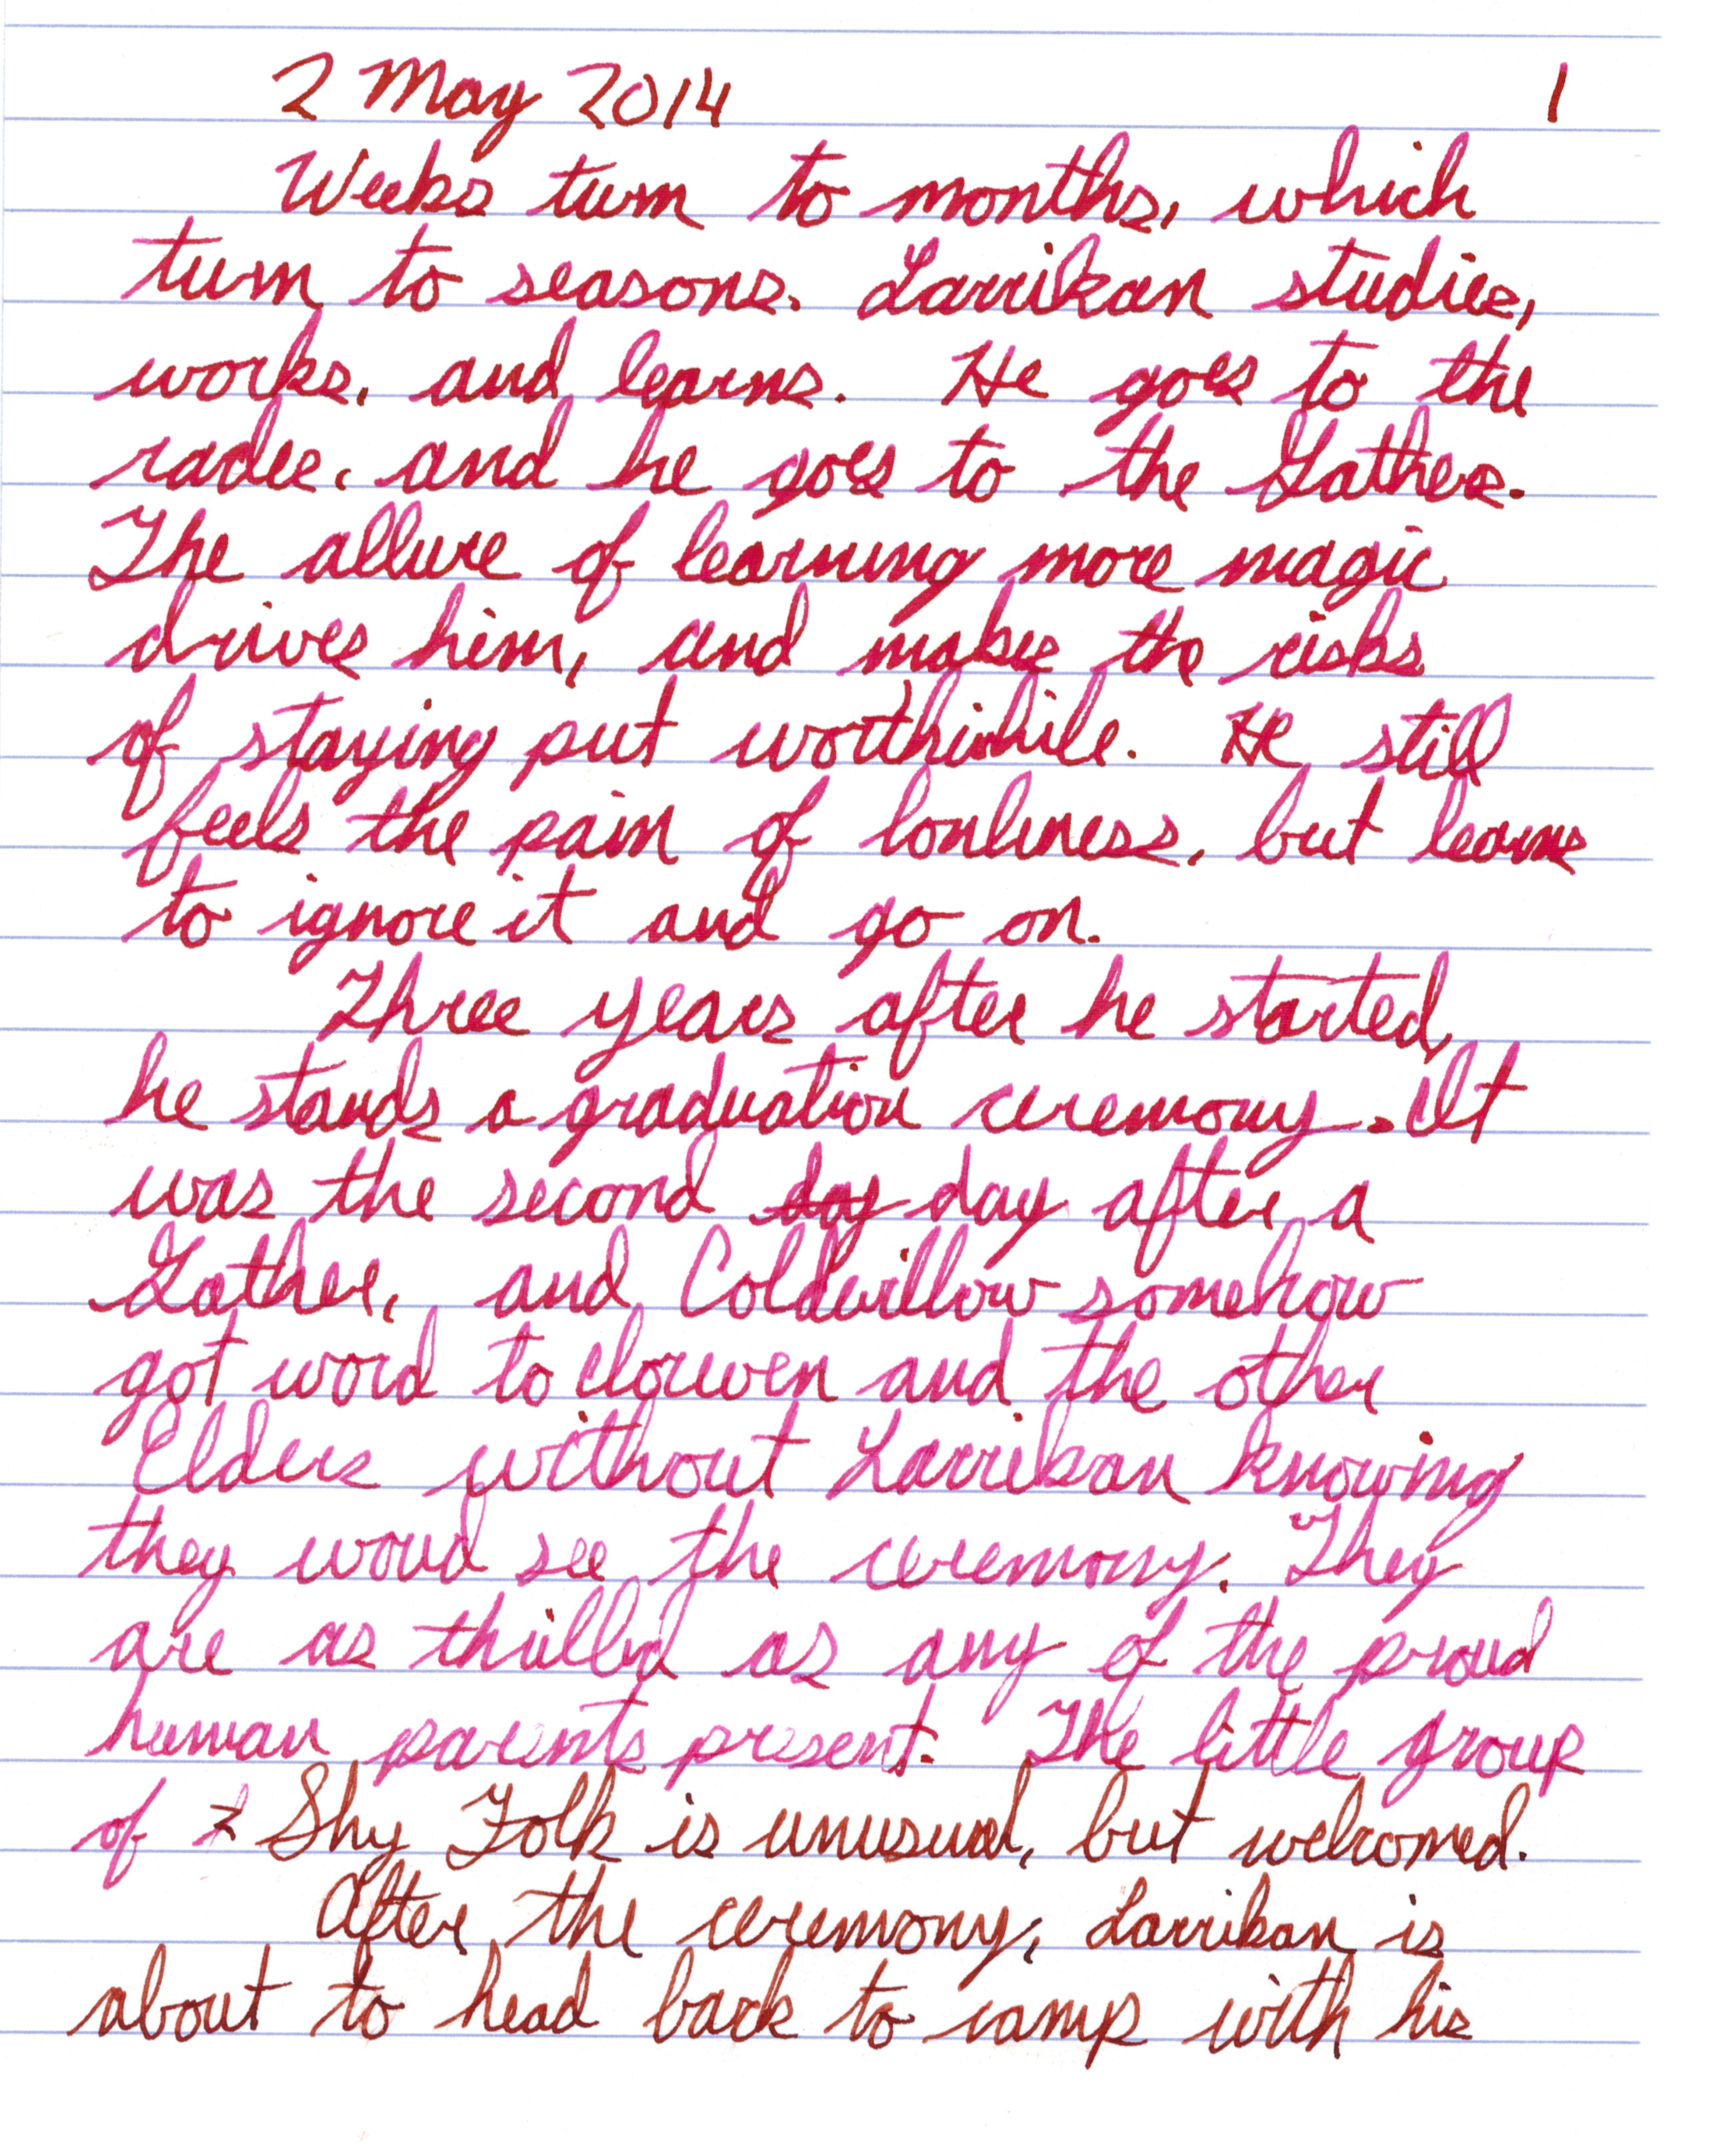 2 May 2014 1
Weeks turn to months, which
turn to seasons. Larrikan studies,
works, and learns. He goes to the
radee, and he goes to the Gather.
The allure of learning more magic
drives him, and makes the risks
of staying put worthwhile. He still
feels the pain of lonliness, but learns
to ignore it and go on.
Three years after he started,
he stands a graduation ceremony. It
was the second day day after a
Gather, and Coldwillow somehow
got word to and the other
Elders without Larrikan knowing
they woud see the ceremony. They
are as thrilled as any of the proud
human parents present. The little group
of Shy Folk is unusual, but welcomed.
After the ceremony, Larrikan is
about to head back to camp with his